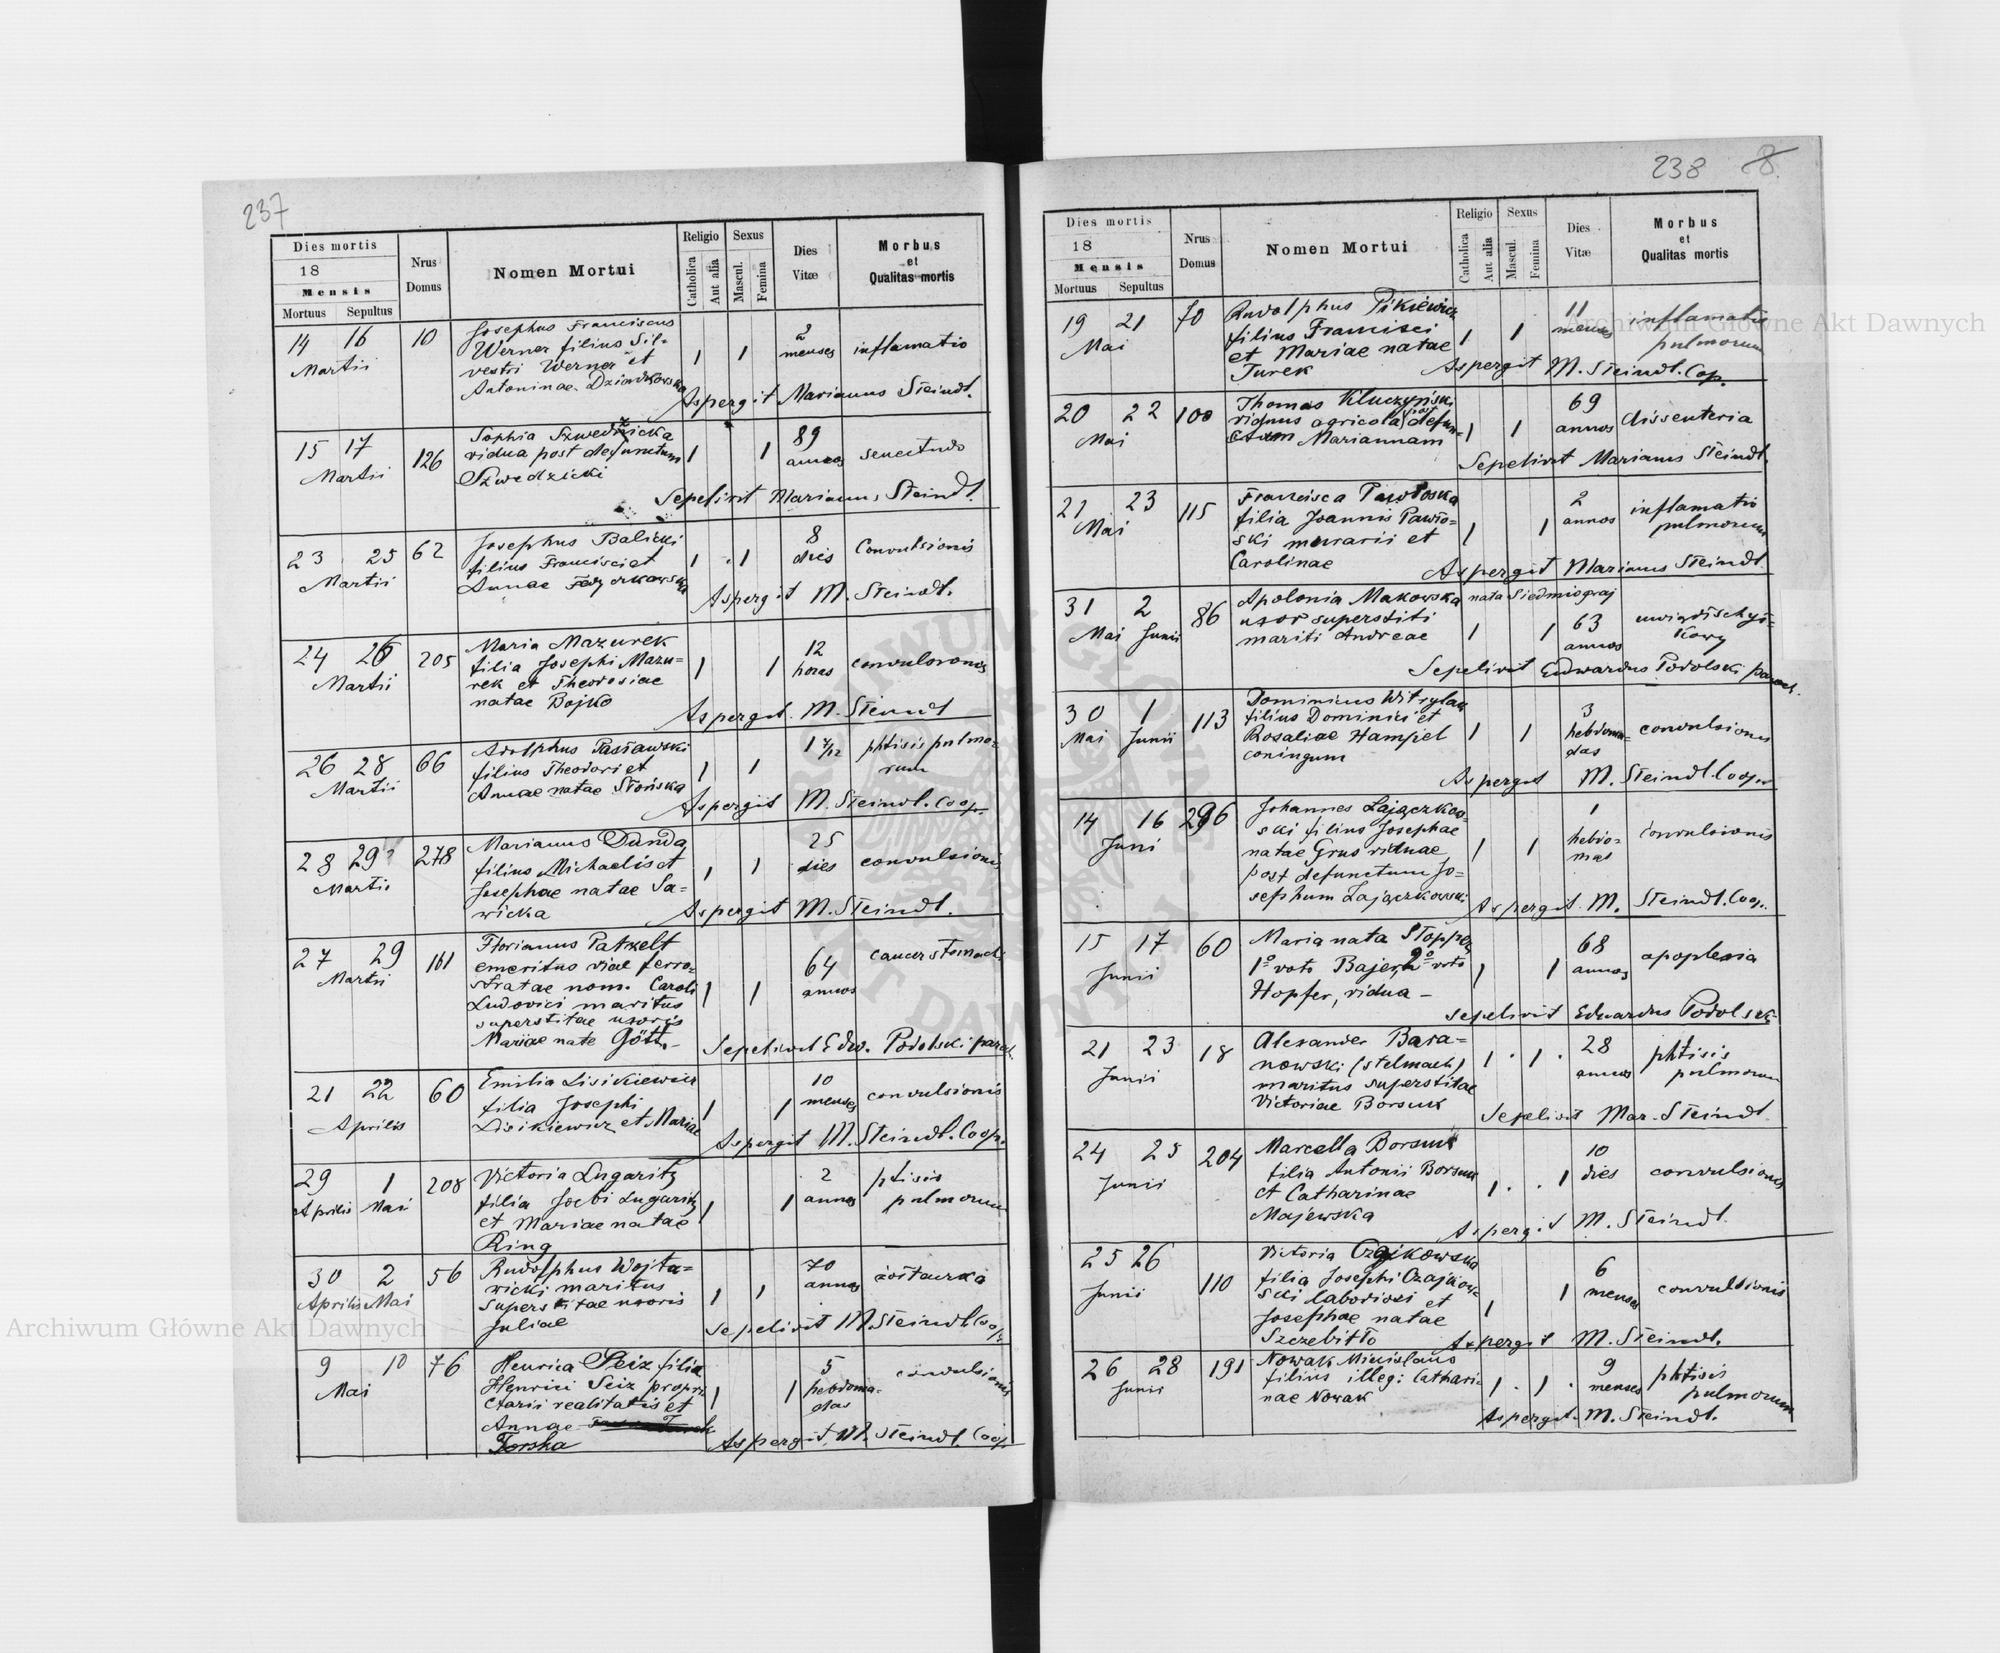 237
Dies mortis
18
Mensis
Mortuus Sepultus
Nrus
Domus
Nomen Mortui
Religio
Catholica
Aut alia
Sexus
Mascul.
Femina
Dies
Vitæ
Morbus
et
Qualitas mortis
14 16 10 Josephus Franciscus
Martii Werner filius Sil-
vestri Werner et
Antoninae Dziadkowska
1 1 2 menses inflamatio
Aspergit Marianus Steindl.
15 17 126 Sophia Szwedzicka
Martii vidua post defunctum
Szwedzicki
1 1 89 annos senectudo
Sepelivit Marianus Steindl.
23 25 62 Josephus Balicki
Martii filius Francisci et
Annae
1 1 8 dies Convulsionis
Aspergit M. Steindl.
24 26 205 Maria Mazurek
Martii filia Josephi Mazu-
rek et Theodosiae
natae Bojko
1 1 12 horas
Aspergit M. Steindl
26 28 66 Adolphus Pasławski
Martii filius Theodori et
Annae natae Słońska
1 1 1 7/12 phtisis pulmo-
rum
Aspergit M. Steindl. Coop.
28 29? 278 Marianus Danda
Martii filius Michaelis et
Josephae natae Sa-
wicka
1 1 25 dies convulsionis
Aspergit M. Steindl.
27 29 161 Florianus Patzelt
Martii emeritus viae ferro-
stratae nom. Caroli
Ludovici maritus
superstitae uxoris
Mariae nate Gött.
1 1 64 annos cancer stomachi
Sepelivit Edw. Podolski paroch.
21 22 60 Emilia Lisikiewicz
Aprilis filia Josephi
Lisikiewicz et Mariae
1 1 10 menses convulsionis
Aspergit M. Steindl. Coop.
29 1 208 Victoria Lugaritz
Aprilis Mai filia Lugaritz
et Mariae natae
Ring
1 1 2 annos ptisis
pulmorum
30 2 56 Rudolphus Wojta-
Aprilis Mai wicki maritus
superstitae uxoris
Juliae
1 1 70 annos
Sepelivit M. Steindl Coop.
9 10 76 Henrica Seiz filia
Mai Henrici Seiz propri-
etarii realitatis et
Annae
Torska
1 1 5 hebdoma-
das convulsionis
Aspergit M. Steindl. Coop.
238 8.
Dies mortis
18
Mensis
Mortuus Sepultus
Nrus
Domus
Nomen Mortui
Religio
Catholica
Aut alia
Sexus
Mascul.
Femina
Dies
Vitæ
Morbus
et
Qualitas mortis
19 21 70 Rudolphus Pikiewicz
Mai filius Francisci
et Mariae natae
Turek
1 1 11 menses inflamatio
pulmorum
Aspergit M. Steindl. Cop.
20 22 100 Thomas Kluczyński
Mai viduus agricola post defun-
ctam Mariannam
1 1 69 annos dissenteria
Sepelivit Marianus Steindl.
21 23 115 Francisca Pawłoska
Mai filia Joannis Pawło-
ski murarii et
Carolinae
1 1 2 annos inflamatio
pulmorum
Aspergit Marianus Steindl
31 2 86 Apolonia Makowska nata Siedmiograj
Mai Junii uxor superstiti
mariti Andreae
1 1 63 annos
Sepelivit Edwardus Podolski paroch.
30 1 113 Dominicus Witrylak
Mai Junii filius Dominici et
Rosaliae Hampel
coningum
1 1 3 hebdoma-
das convulsiones
Aspergit M. Steindl. Coop.
14 16 296 Johannes Łajączkow-
Juni ski filius Josephae
natae Grus viduae
post defunctum Jo-
sephum Łajączkowski
1 1 1 hebdo-
mas convulsionis
Aspergit M. Steindl. Coop.
15 17 60 Maria nata Stopper
Junii 1º voto Bajer, 2º voto
Hopfer, vidua -
1 1 68 annos apoplexia
sepelivit Eduardus Podolski
21 23 18 Alexander Bara-
Junii nowski (stelmach)
maritus superstitae
Victoriae Borsuk
1 1 28 annos phtisis
pulmorum
Sepelivit Mar. Steindl.
24 25 204 Marcella Borsuk
Junii filia Antonii Borsuk
et Catharinae
Majewska
1 1 10 dies convulsiones
Aspergit M. Steindl.
25 26 110 Victoria Czajkowska
Junii filia Josephi Czajkow-
ski laboriosi et
Josephae natae
Szczebitto
1 1 6 menses convulsionis
Aspergit M. Steindl.
26 28 191 Nowak Micislaus
Junii filius illegi: Cathari-
nae Nowak
1 1 9 menses phtisis
pulmorum
Aspergit. M. Steindl.
Archiwum Główne Akt Dawnych
Archiwum Główne Akt Dawnych
ARCHIWUM GŁÓWNE AKT DAWNYCH